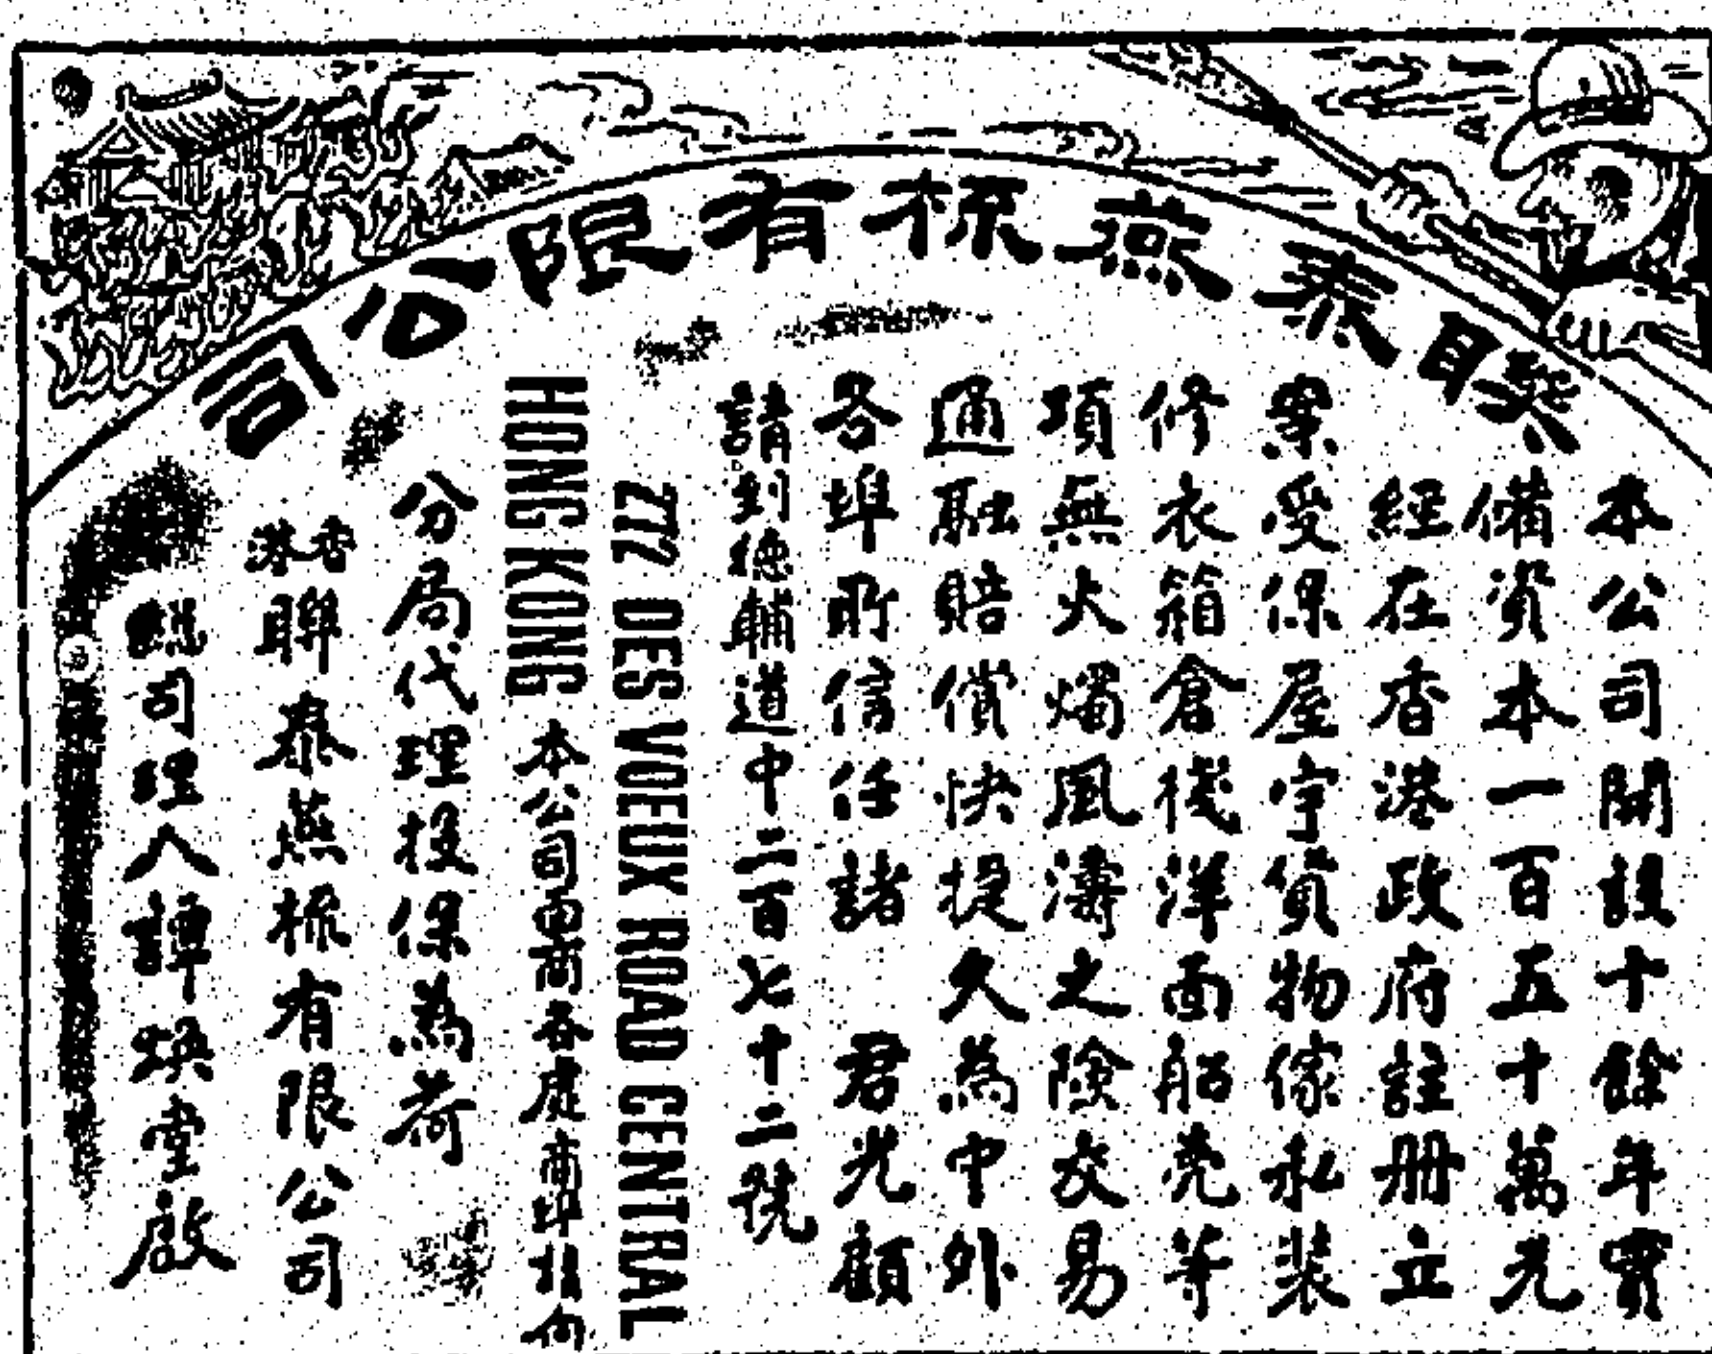 聯泰燕梳有限公司
本公司開設十餘年實
備資本一百五十萬元
經在香港政府註册立
案受保屋宇貨物傢私裝
修衣箱倉棧洋面船壳等
項無火燭風濤之險交易
通融賠償快捷久為中外
各埠所信任諸 君光顧
請到德輔道中二百七十二號
272 DES VOEUX ROAD CENTRAL
HONG KONG 本公司 各處 埠 向
分局代理投保為荷
香港聯泰燕梳有限公司
總司理人譚煥堂啟